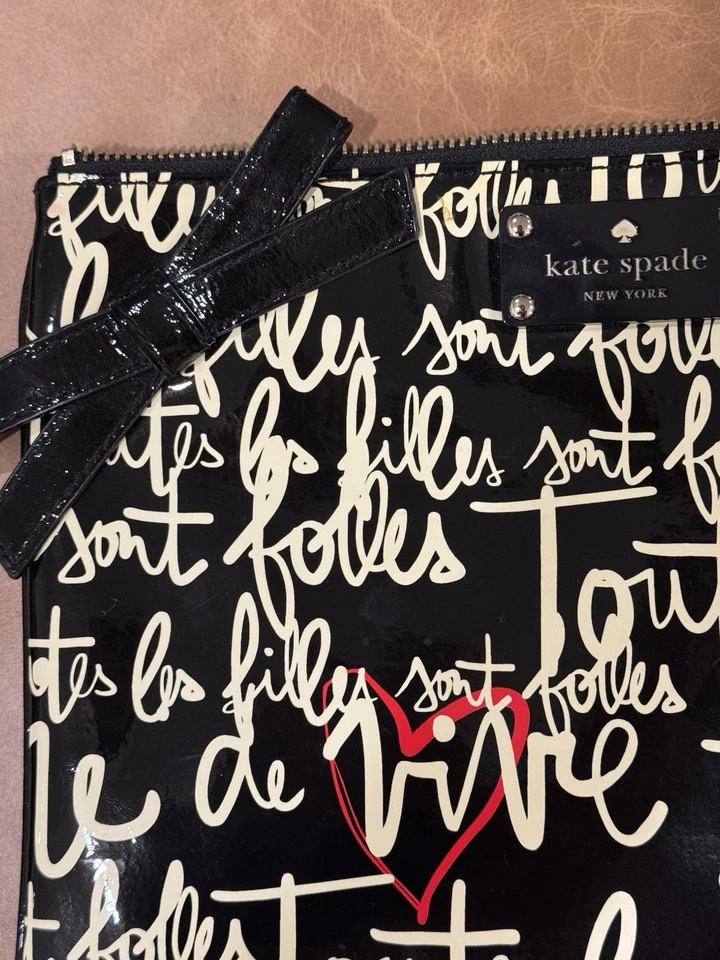 filles folles
kate spade
NEW YORK
filles sont folles
toutes les filles sont
sont folles Tout
les filles sont folles
de vivre
folles Toute